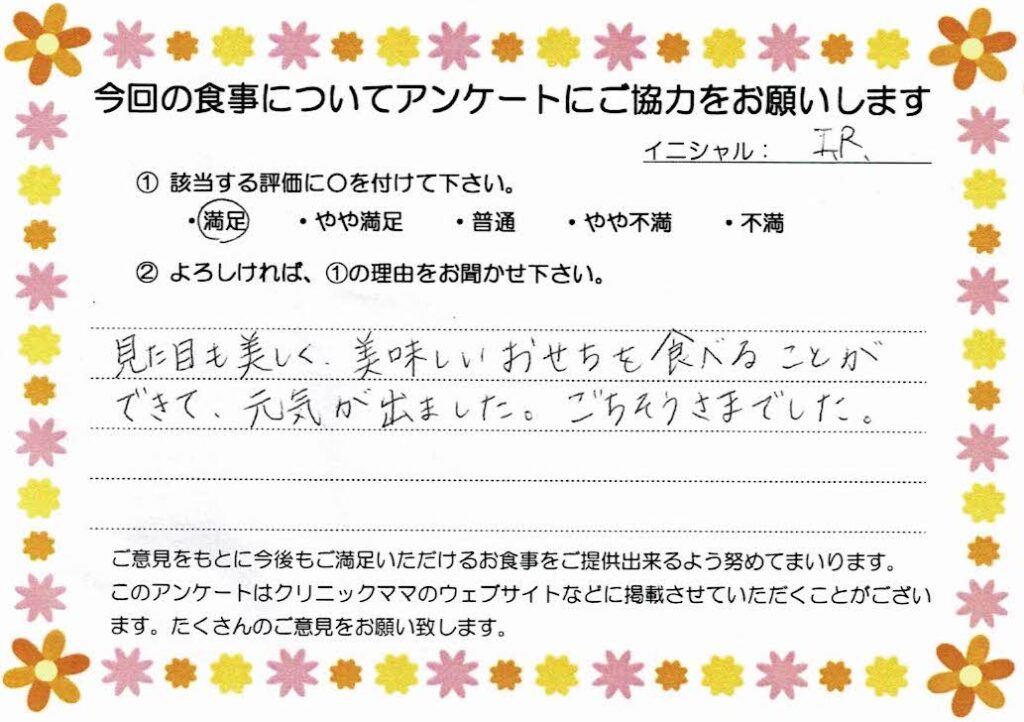 今回の食事についてアンケートにご協力をお願いします
イニシャル： I.R.
① 該当する評価に〇を付けて下さい。
・満足 ・やや満足 ・普通 ・やや不満 ・不満
② よろしければ、①の理由をお聞かせ下さい。
見た目も美しく、美味しいおせちを食べることが
できて、元気が出ました。ごちそうさまでした。
ご意見をもとに今後もご満足いただけるお食事をご提供出来るよう努めてまいります。
このアンケートはクリニックママのウェブサイトなどに掲載させていただくことがござい
ます。たくさんのご意見をお願い致します。